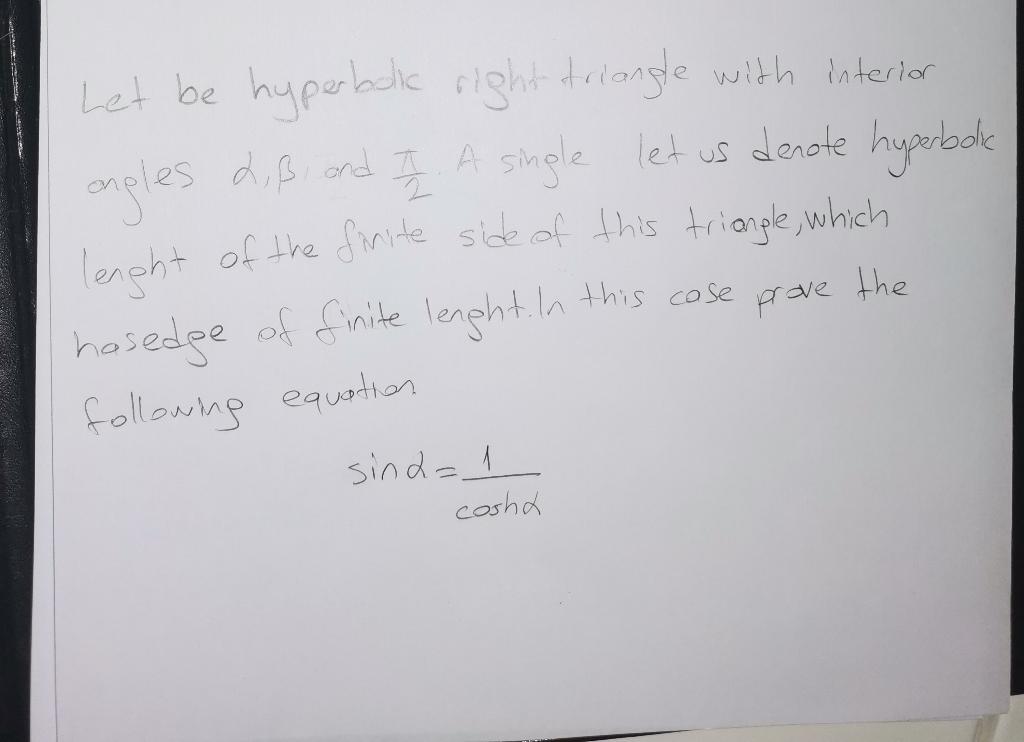 Let be hyperbolic right triangle with interior
angles α, β, and π/2. A single let us denote hyperbolic
lenght of the finite side of this triangle, which
hasedge of finite lenght. In this case prove the
following equation
sinα = 1/coshα